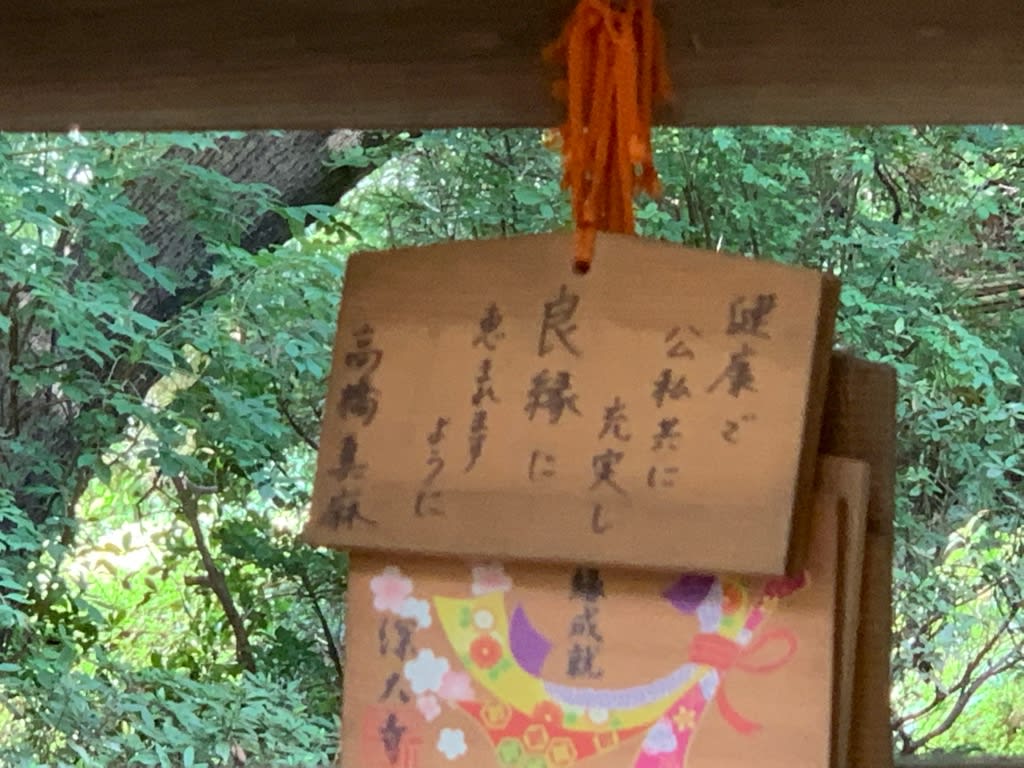 健康で
公私共に
充実し
良縁に
恵まれます
ように
高橋真麻
縁成就
深大寺